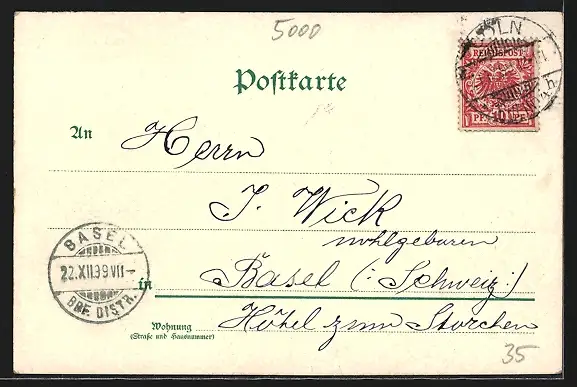 5000
CÖLN
REICHSPOST
Postkarte
An
Herrn
J. Wick
wohlgeboren
BASEL
22.XII.99 VII-
BRF. DISTR.
in Basel (: Schweiz :)
Wohnung
(Straße und Hausnummer)
Hôtel zum Storchen
35